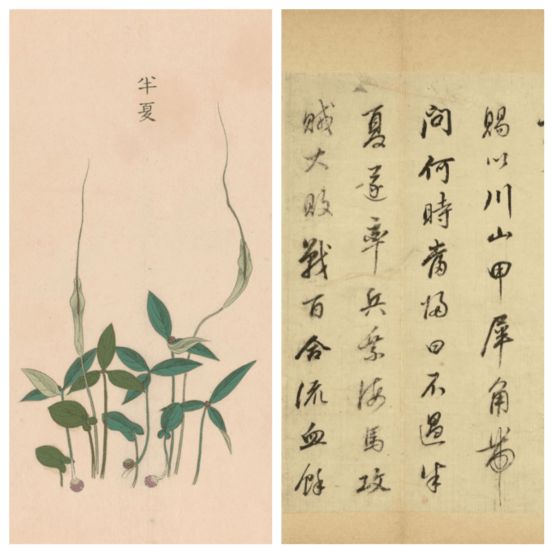 半夏
賜以川山甲犀角帶
問何時當歸曰不過半
夏遂率兵乘海馬攻
賊大敗戰百合流血餘